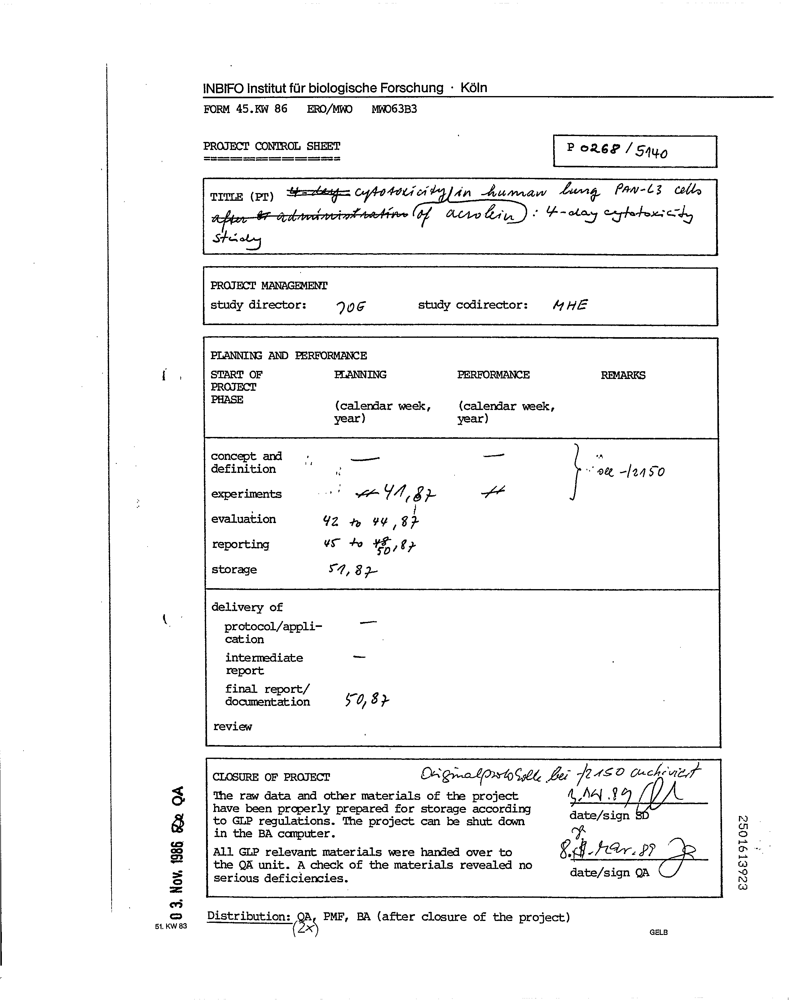 INBIFO Institut für biologische Forschung · Köln
FORM 45.KW 86 ERO/MWO MWO63B3
PROJECT CONTROL SHEET
P 0268 / 5140
TITLE (PT) 4-day cytotoxicity in human lung PAN-L3 cells
after administration (of acrolein): 4-day cytotoxicity
study
PROJECT MANAGEMENT
study director: JOG study codirector: MHE
PLANNING AND PERFORMANCE
START OF PLANNING PERFORMANCE REMARKS
PROJECT
PHASE
(calendar week, (calendar week,
year) year)
concept and — —
definition see -/2150
experiments 41,87
evaluation 42 to 44,87
reporting 45 to 48 50,87
storage 51,87
delivery of
protocol/appli- —
cation
intermediate —
report
final report/
documentation 50,87
review
CLOSURE OF PROJECT Originalprotokolle bei -/2150 archiviert
The raw data and other materials of the project
have been properly prepared for storage according
to GLP regulations. The project can be shut down
in the BA computer.
date/sign SD
All GLP relevant materials were handed over to
the QA unit. A check of the materials revealed no
serious deficiencies.
8. Mar. 89
date/sign QA
Distribution: QA, PMF, BA (after closure of the project)
(2x)
GELB
51. KW 83
03. Nov. 1986 QA
2501613923